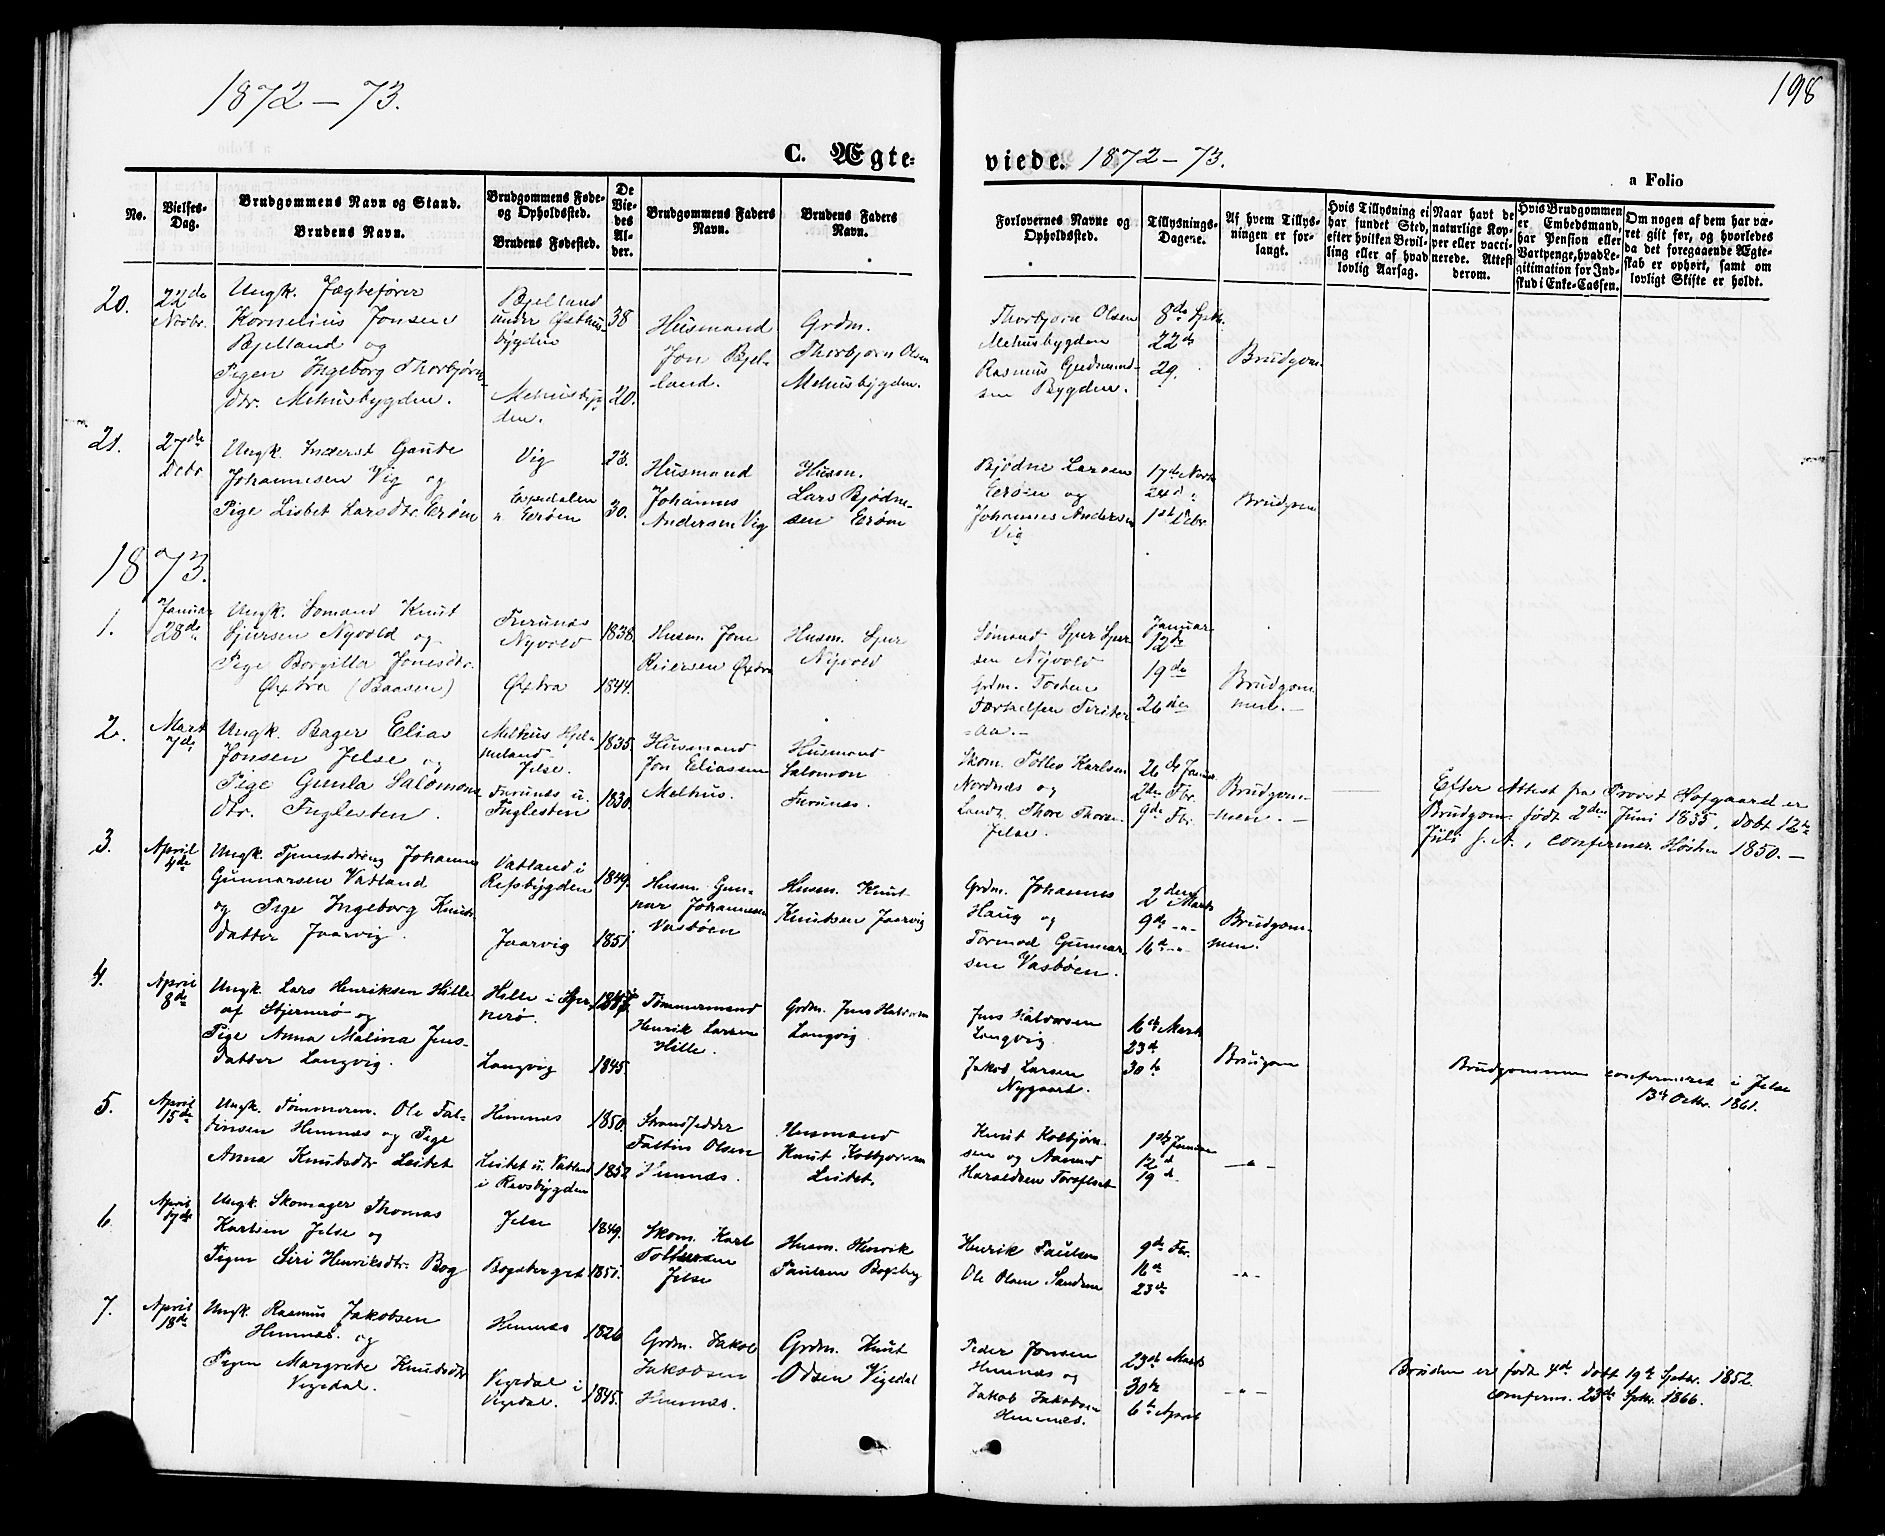 1872-73.
198
C. Ægte-
viede. 1872-73.
a Folio
No.
Vielses-
Dag.
Brudgommens Navn og Stand.
Brudens Navn.
Brudgommens Føde-
og Opholdssted.
Brudens Fødested.
De
Vie-
des
Al-
der.
Brudgommens Faders
Navn.
Brudens Faders
Navn.
Forlovernes Navne og
Opholdssted.
Tillysnings-
Dagene.
Af hvem Tillys-
ningen er for-
langt.
Hvis Tillysning ei
har fundet Sted,
efter hvilken Bevil-
ling eller af hvad
lovlig Aarsag.
Naar havt de
naturlige Kop-
per eller vacci-
nerede. Attest
derom.
Hvis Brudgommen
er Embedsmand,
har Pension eller
Vartpenge, hvad Le-
gitimation for Ind-
skud i Enke-Cassen.
Om nogen af dem har væ-
ret gift før, og hvorledes
da det foregaaende Ægte-
skab er ophørt, samt om
lovligt Skifte er holdt.
20.
22de
Novbr.
Ungk. Jægtefører
Kornelius Jonsen
Bjelland og
Pigen Ingeborg Thorbjørns
dtr. Mehusbygden.
Bjelland
under Østhus-
bygden
Mehusbyg-
den.
38
20.
Husmand
Jon Bjel-
land.
Grdm.
Thorbjørn Olsen
Mehusbygden.
Thorbjørn Olsen
Mehusbygden
Rasmus Gudmund-
sen Bygden.
8de Sptbr.
22de
29.
Brudgom.
21.
27de
Decbr
Ungk. Inderst Gaute
Johannesen Vig og
Pige Lisbet Larsdtr. Erøen
Vig
Erøen
23.
30.
Husmand
Johannes
Andersen Vig
Husm.
Lars Bjødne-
sen Erøen
Bjødne Larsen
Erøen og
Johannes Andersen
Vig
17de Novb
24de "
1ste Debr.
Brudgom
1873.
1.
Januar
28de
Ungk. Sømand Knut
Sjursen Nyvold og
Pige Borgilla Jonesdtr.
Øxtra (Baasen)
Furunes
Nyvold
Øxtra
1838.
1844.
Husm. Jone
Reiersen Øxtra
Husm. Sjur
Nyvold
Sømand Sjur Sjur
sen Nyvold
Grdm. Tosten
-aa.-
Januar
12de
19de
26de
Brudgom
men.-
2.
Mart
7de
Ungk. Bager Elias
Jonsen Jelse og
Pige Gunla Salomons
dtr. Fuglesten.
Melhus Hjel-
meland
Jelse.
Furunes u.
Fuglesten
1835.
1830.
Husmand
Jon Eliassen
Melhus.
Husmand
Salomon
Furunes.
Skom. Tollev Karlsen
Nordnæs og
Landh. Thore Thorsen
Jelse.
26de Januar
2den Fbr.
9de Fbr.
Brudgom-
men.-
Efter Attest fra Provst Hofgaard er
Brudgom. født 2den Juni 1835, døbt 12te
Juli s. A., confirmer. Høsten 1850.-
3.
April
4de
Ungk. Tjenestedreng Johannes
Gunnarsen Vatland
og Pige Ingeborg Knuts
datter Jaarvig.
Vatland i
Refsbygden
Jaarvig
1849.
1851.
Husm. Gun-
nar Johannesen
Vasbøen
Husm. Knut
Knudsen Jaarvig
Grdm. Johannes
Haug og
Tormod Gunnar-
sen Vasbøen.
2den Marts
9de -"-
16de -"-
Brudgom-
men.
4.
April
8de
Ungk. Lars Henriksen Hille
af Stjernerø og
Pige Anna Malina Jens-
datter Langvig.
Hille i Stjer-
nerø.
Langvig
1845.
Tømmermand
Henrik Larsen
Hille.
Grdm. Jens Halvorsen
Langvig
Jens Halvorsen
Langvig.
Jakob Larsen
Nygaard.
16de Marts
23de
30te
Brudgom
Brudgommen confirmeret i Jelse
13de Octbr. 1861.
5.
April
15de
Ungk. Tømmerm. Ole Fal-
tinsen Hemnæs og Pige
Anna Knutsdtr Leitet
Himnæs
Leitet u. Vatland
i Revsbygden
1850.
1852
Strandsidder
Faltin Olsen
Himnæs.
Husmand
Knut Kolbjørnsen
Leitet.
Knut Kolbjørn-
sen og Aamund
Haraldsen
1ste Januar
12de
19de
-"-
6.
April
17de
Ungk. Skomager Thomas
Karlsen Jelse og
Pigen Siri Henriksdtr. Bog
Jelse
Bogsberget
1849.
1851.
Skom. Karl
Jelse
Husm. Henrik
Paulsen Bogsbg
Henrik Paulsen
Ole Olsen Sandsen
9de Fbr.
16de
23de
-"-
7.
April
18de
Ungk. Rasmus Jakobsen
Himnæs. og
Pigen Margrete Knutsdtr
Vigedal.
Himnæs
Vigedal i
Vigedal.
1826
1845.
Grdm. Jakob
Jakobsen
Himnæs.
Grdm. Knut
Odsen Vigedal
Peder Jonsen
Himnæs og
Jakob Jakobsen
Himnæs.
23de Marts
30te
6te April
-"-
Bruden er født 4de døbt 19de Sptbr. 1852.
conferms. 23de Sptbr. 1866.